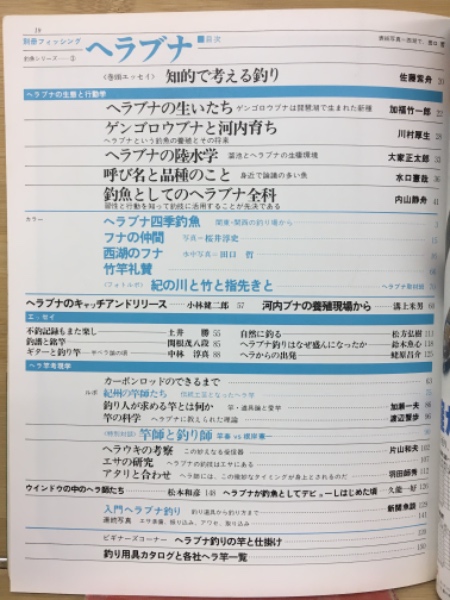 10
別冊フィッシング
ヘラブナ ■目次
〈巻頭エッセイ〉 知的で考える釣り 佐藤紫舟 20
ヘラブナの生態と行動学
ヘラブナの生いたち ゲンゴロウブナは琵琶湖で生まれた新種 加福竹一郎 22
ゲンゴロウブナと河内育ち 川村厚生 28
ヘラブナという釣魚の養殖とその将来
ヘラブナの陸水学 湖沼とヘラブナの生棲環境 大家正太郎 33
呼び名と品種のこと 身近で論議の多い魚 水口憲哉 36
釣魚としてのヘラブナ全科 内山静舟 41
習性と行動を知って釣技に活用することが先決である
カラー
ヘラブナ四季釣魚 関東・関西の釣り場から
フナの仲間 写真=桜井淳史
西湖のフナ 水中写真=田口 哲
竹竿礼賛
〈フォトルポ〉 紀の川と竹と指先きと ヘラブナ取材班
ヘラブナのキャッチアンドリリース 小林健二郎 57 河内ブナの養殖現場から 溝上末男
エッセイ
不釣記録もまた楽し 土井 勝 55 自然に釣る 松方弘樹 111
釣譜と銘竿 関根茂八段 85 ヘラブナ釣りはなぜ盛んになったか 鈴木魚心 118
ギターと釣り竿 中林 淳真 88 ヘラからの出発 蛯原昌介 125
ヘラ竿考現学
カーボンロッドのできるまで 63
ルポ 紀州の竿師たち 伝統工芸となったヘラ竿
釣り人が求める竿とは何か 竿・道具論と愛竿 加瀬一夫
竿の科学 ヘラブナに教えられた理論 渡辺賢歩
〈特別対談〉 竿師と釣り師
ヘラウキの考察 この妙えなる発信器 片山和夫 102
エサの研究 ヘラブナの釣技はエサにある 107
アタリと合わせ ヘラ師には、この微妙なタイミングが身上とされるのだ 羽田師秀 112
ウインドウの中のヘラ師たち 松本和彦 148 ヘラブナが釣魚としてデビューしはじめた頃 久能一好 120
入門ヘラブナ釣り 釣り道具から釣り方まで 新間魚談 129
連続写真 エサ準備、振り込み、アワセ、取り込み 141
ビギナーズコーナー ヘラブナ釣りの竿と仕掛け
釣り用具カタログと各社ヘラ竿一覧